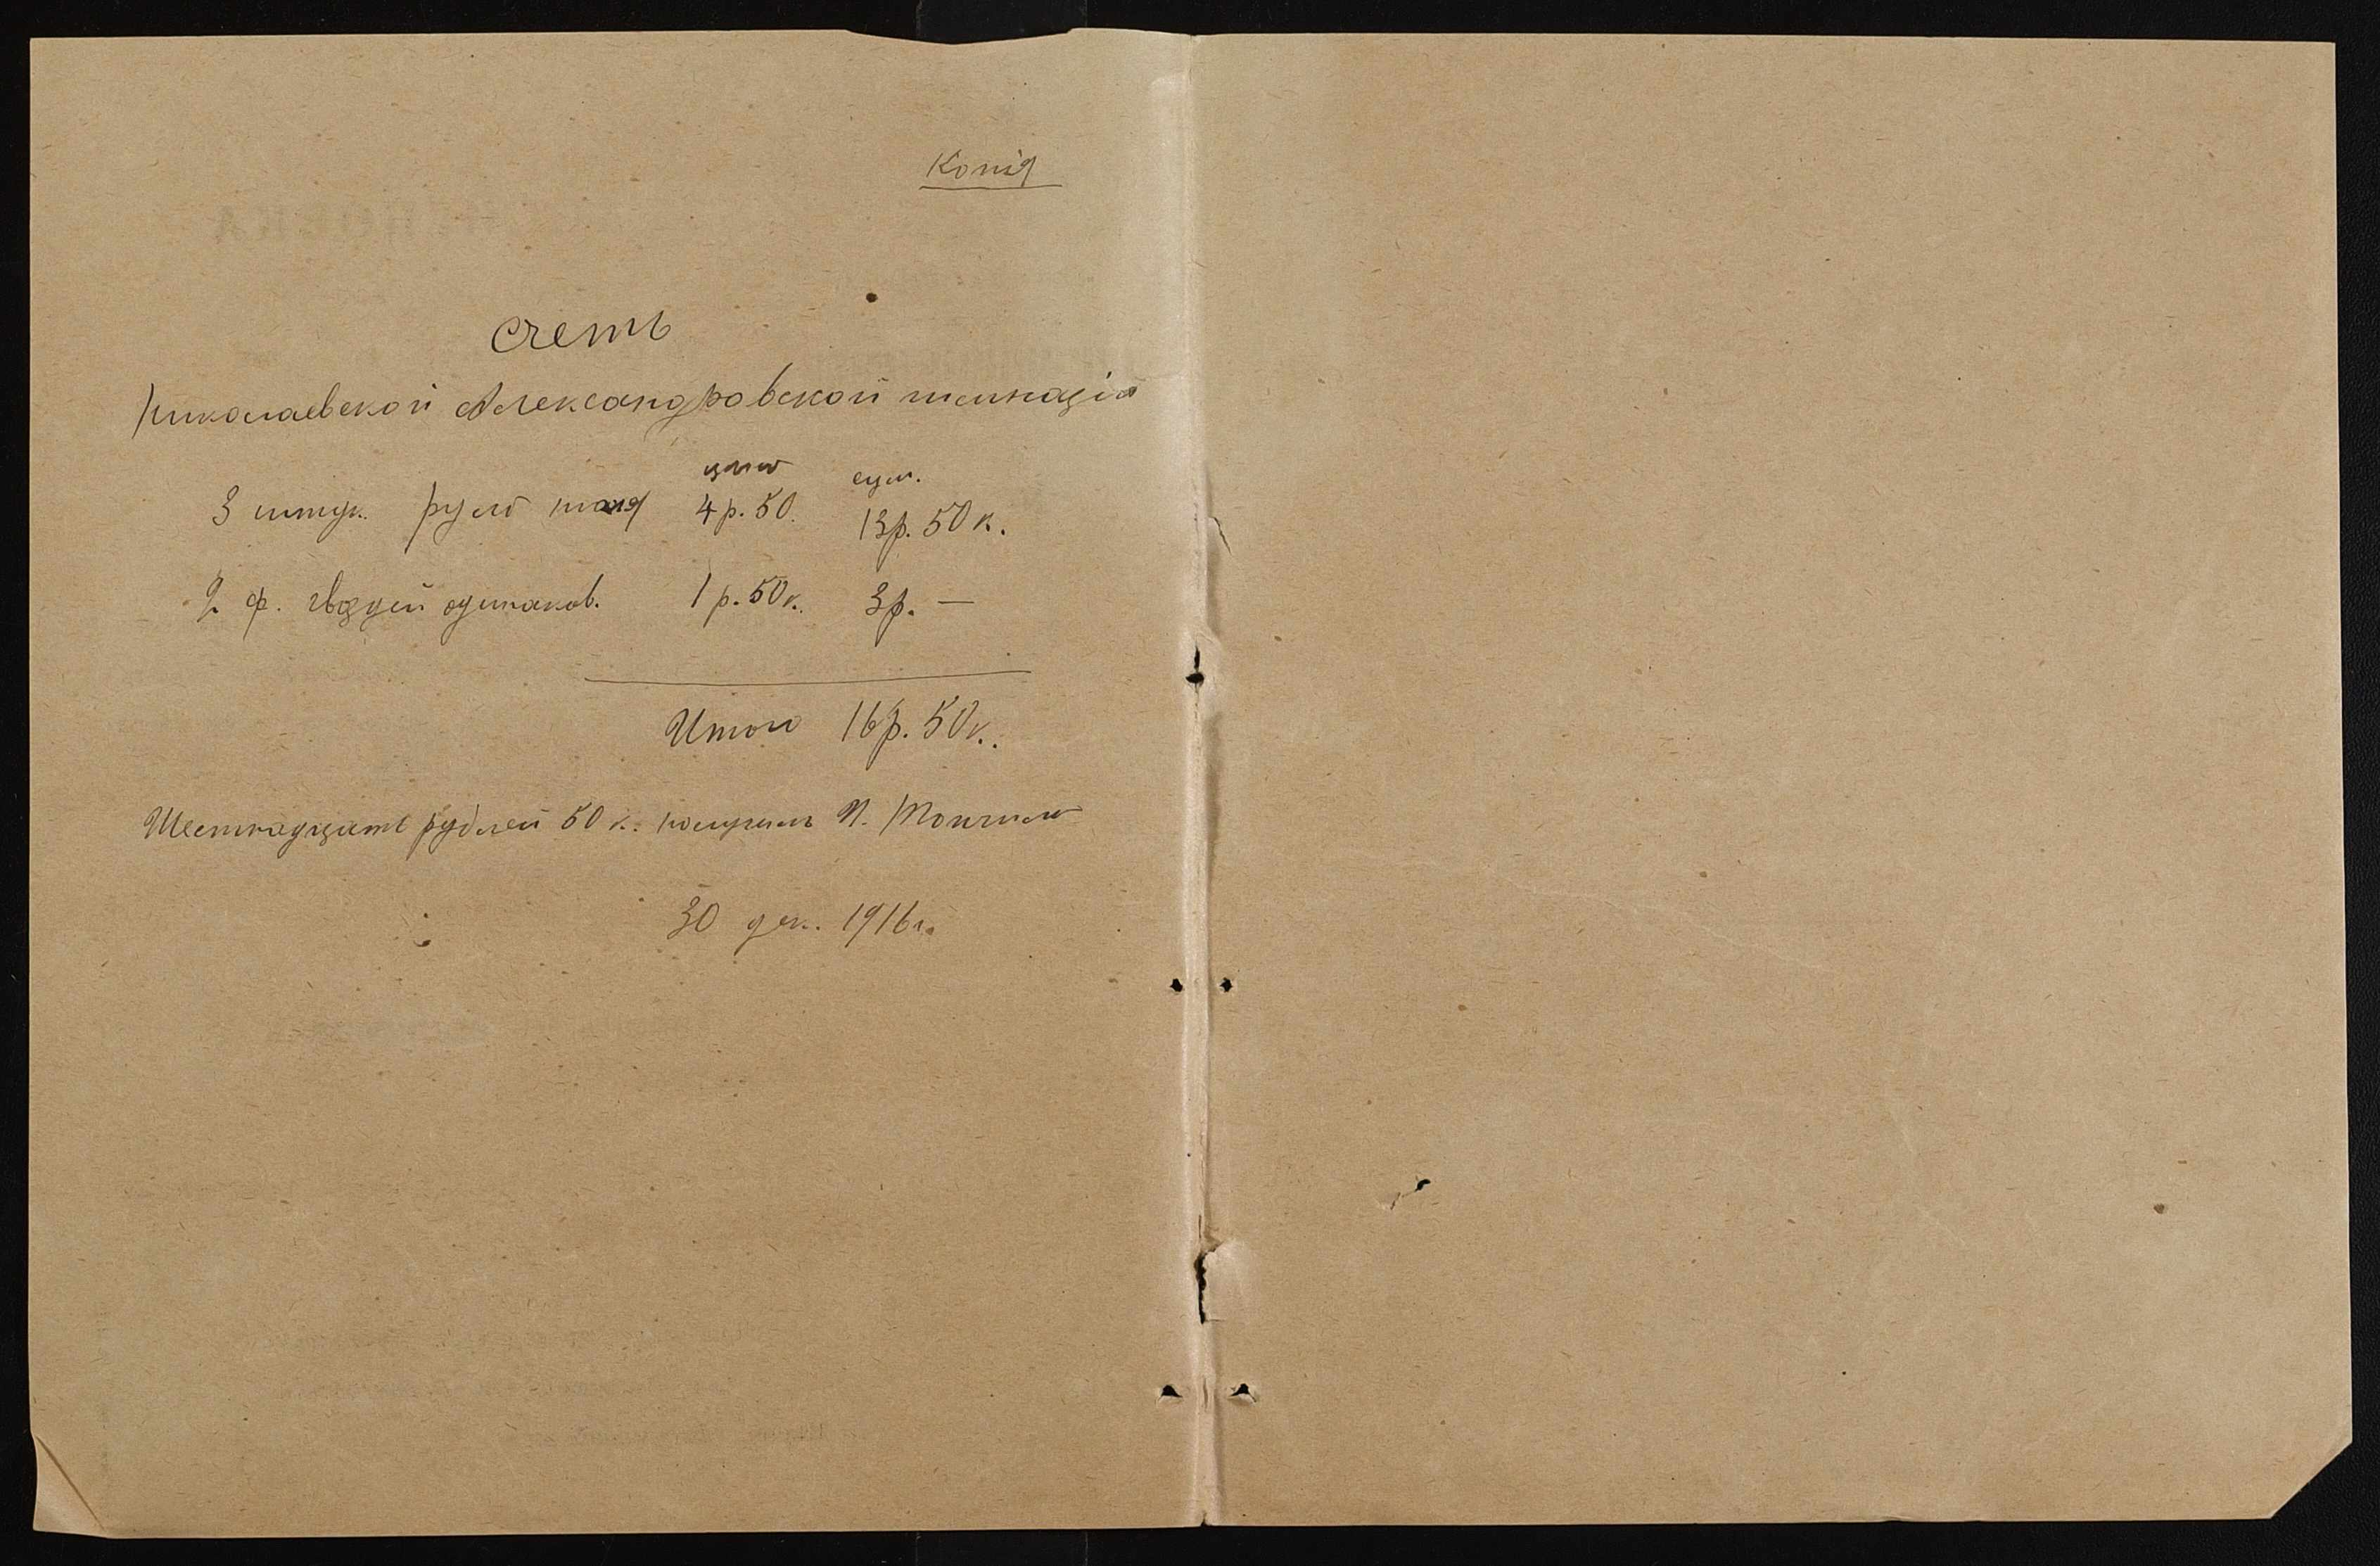 Копія
Счетъ
Николаевской Александровской гимназіи
цѣна сум.
3 штук. руло толя 4 р. 50. 13 р. 50 к.
2 ф. гвоздей одинаков. 1 р. 50 к. 3 р. —
Итого 16 р. 50 к.
Шестнадцать рублей 50 к. получилъ
30 дек. 1916 г.